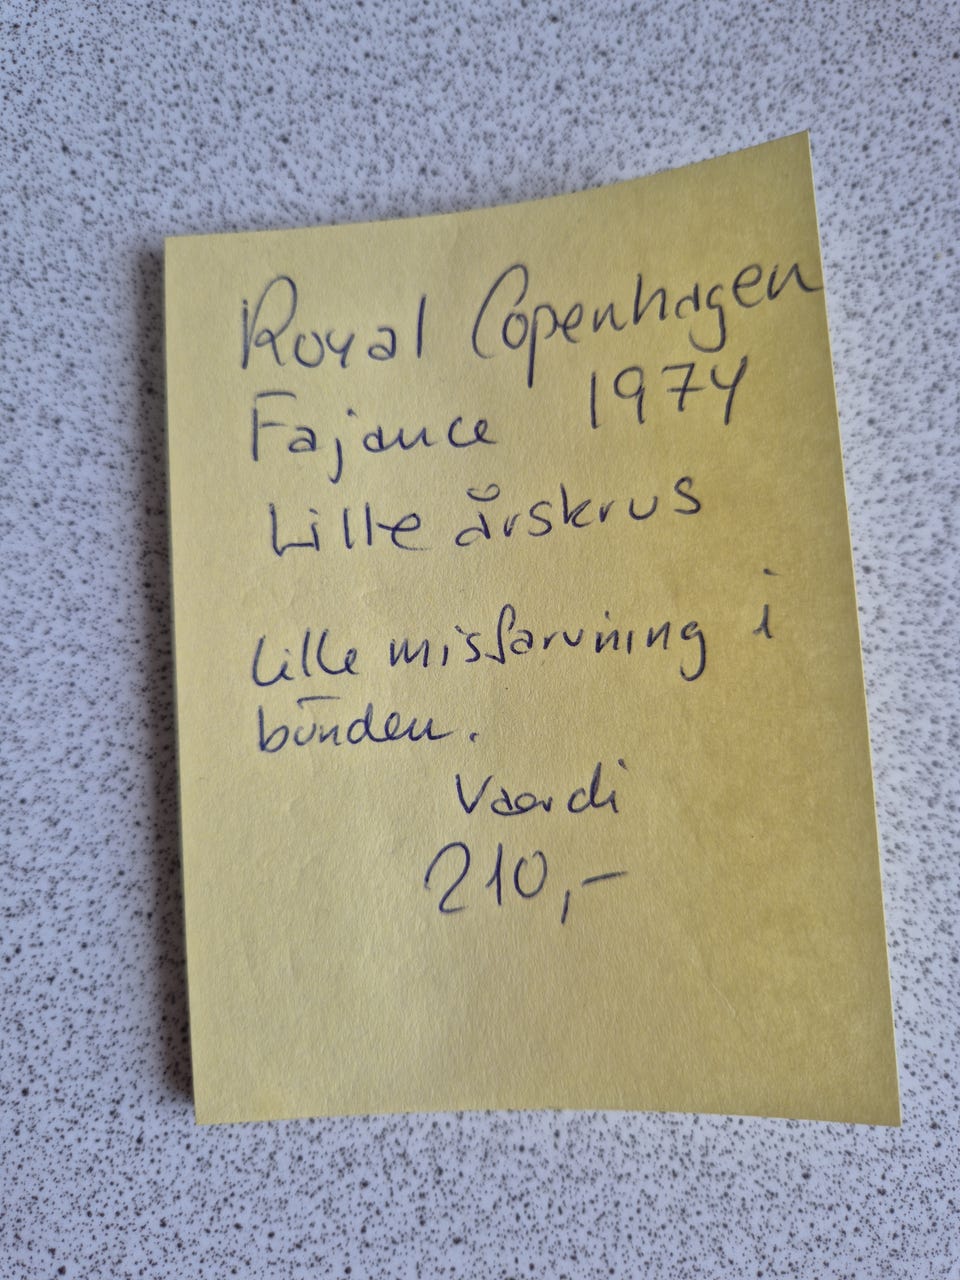 Royal Copenhagen
Fajance 1974
Lille årskrus
Lille misfarvning i
bunden.
Værdi
210,-